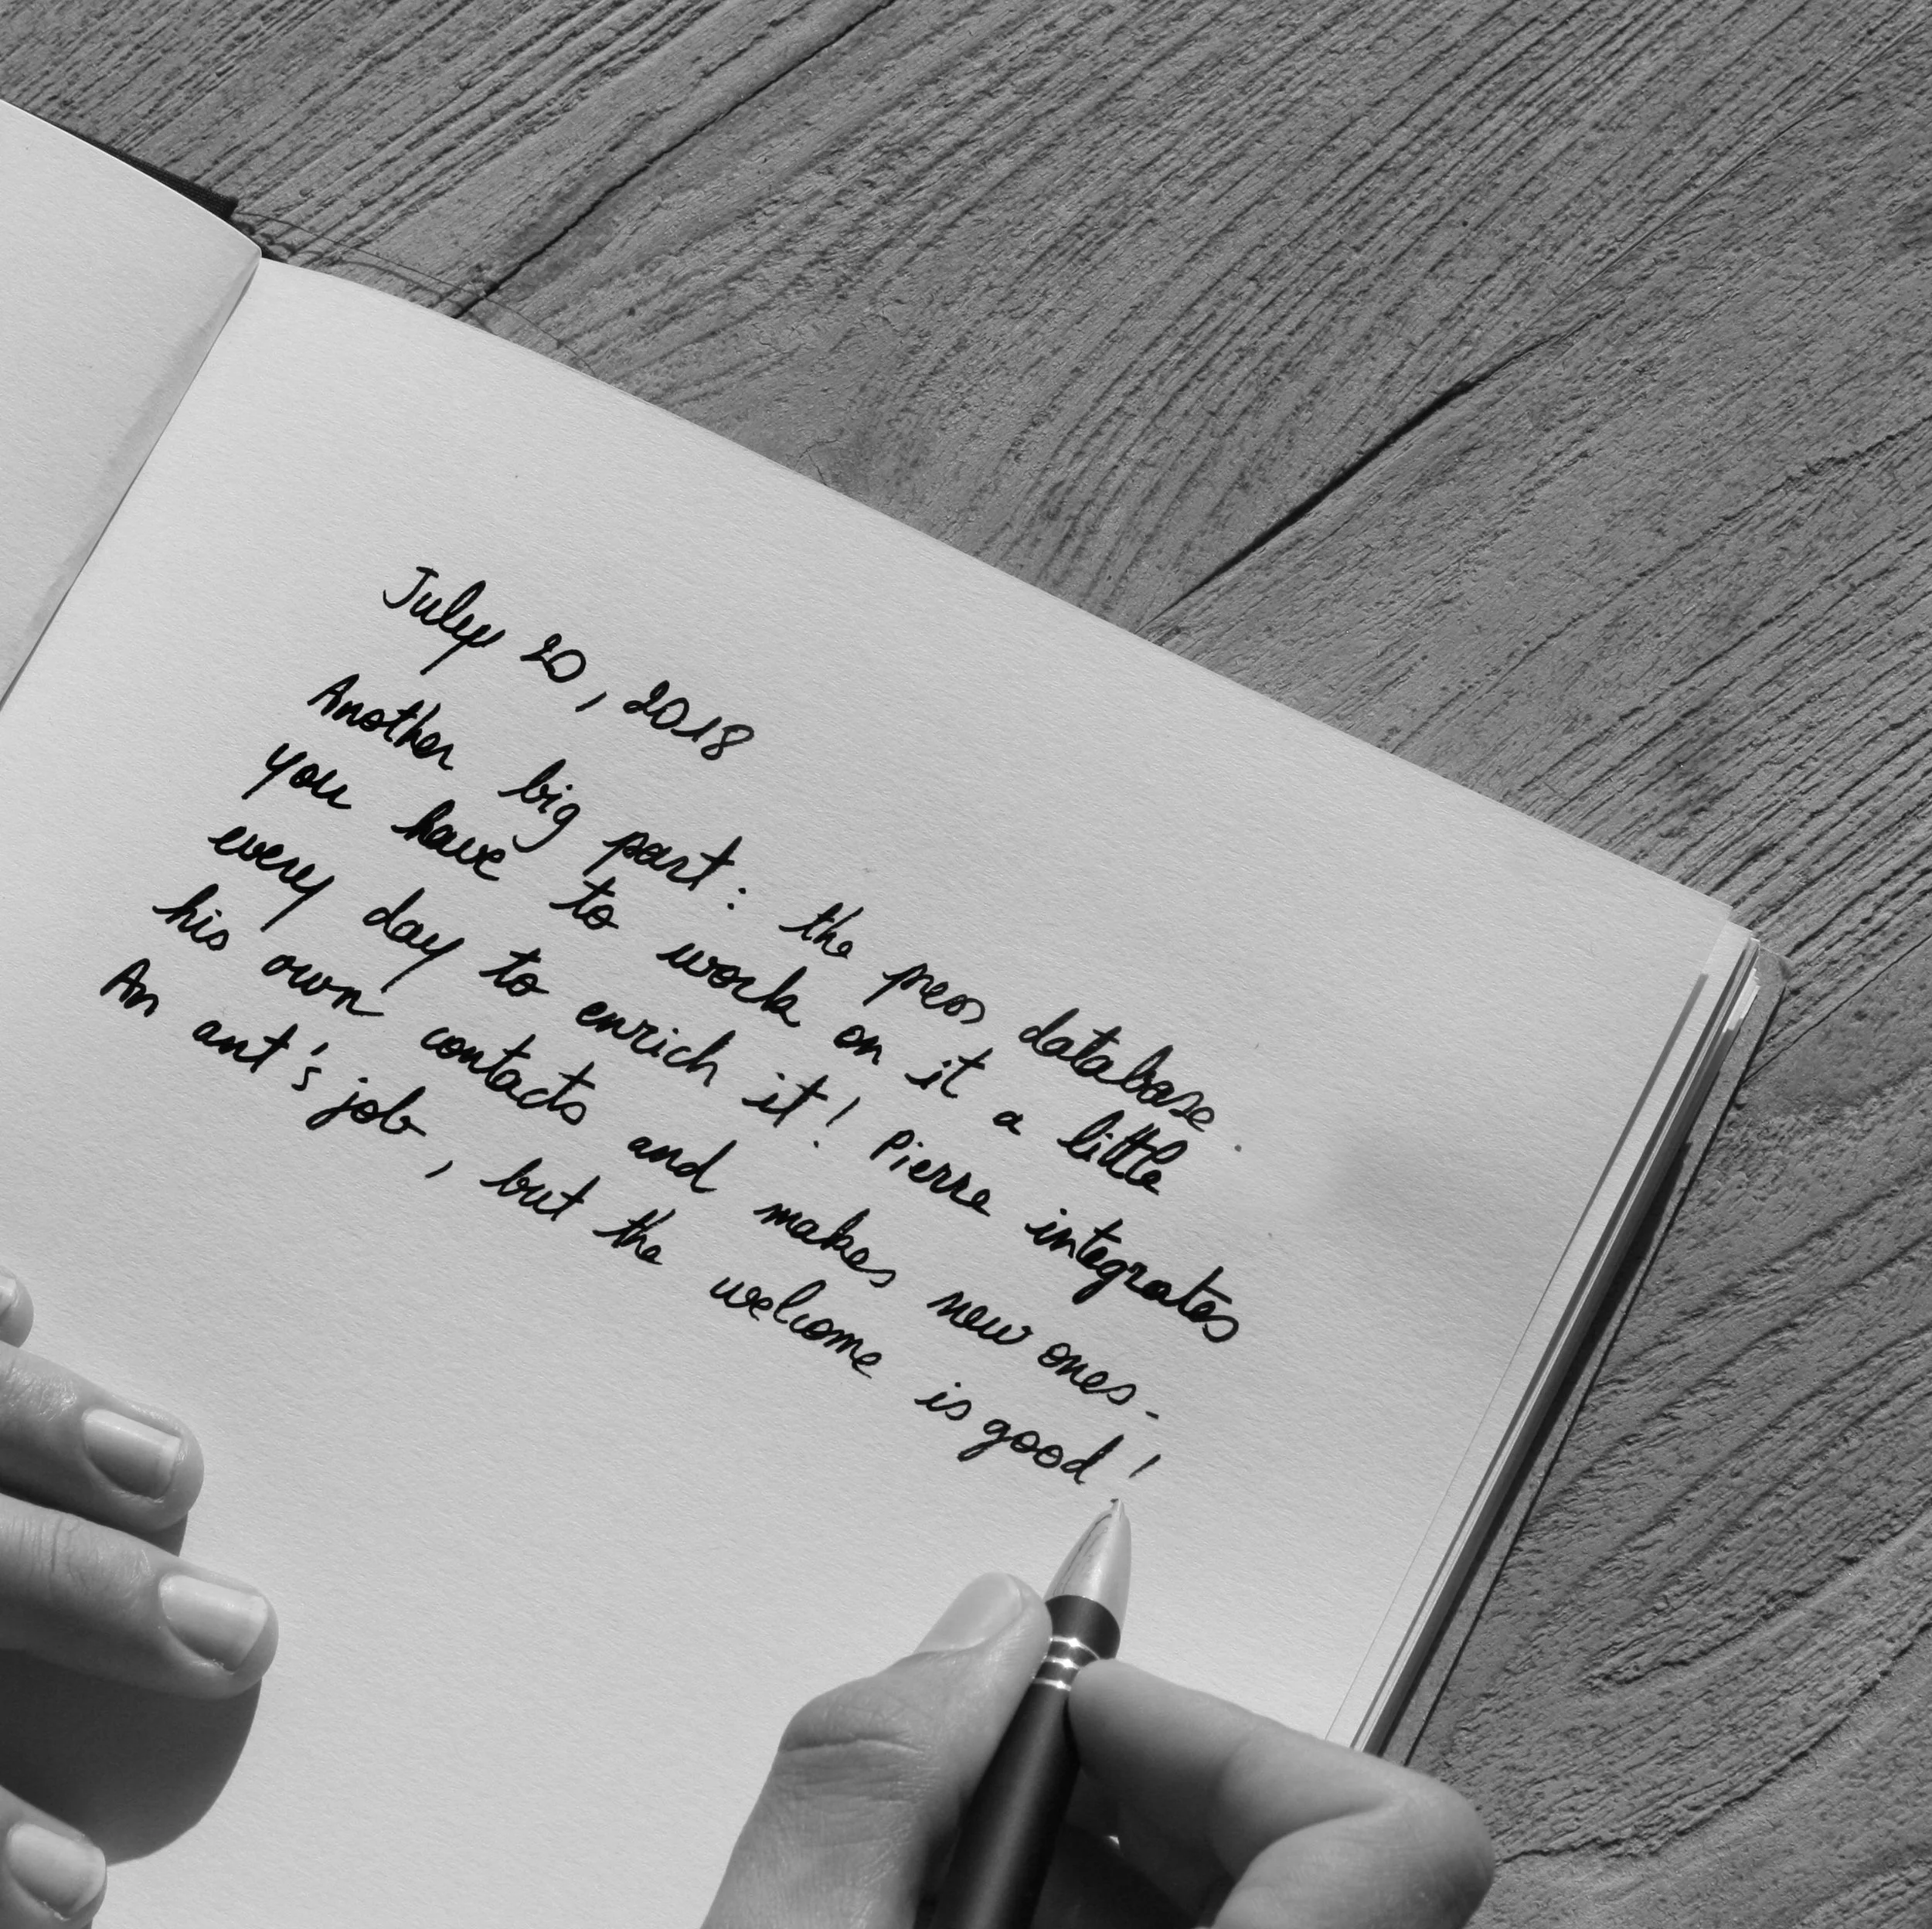 July 20, 2018
Another big part: the press database.
you have to work on it a little
every day to enrich it! Pierre integrates
his own contacts and makes new ones.
An ant's job, but the welcome is good!